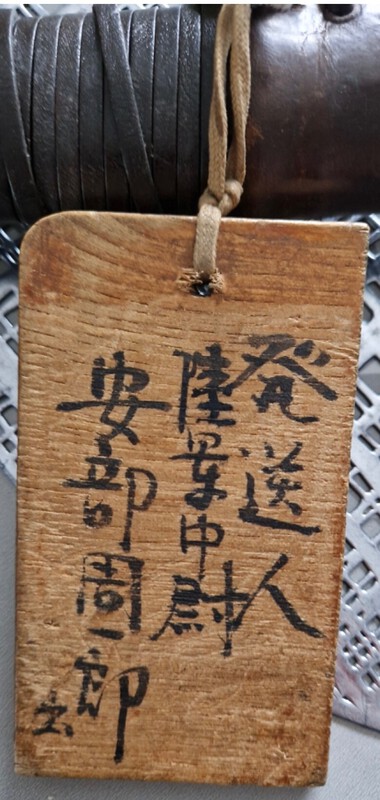 発送人
陸軍中尉
安部周一郎